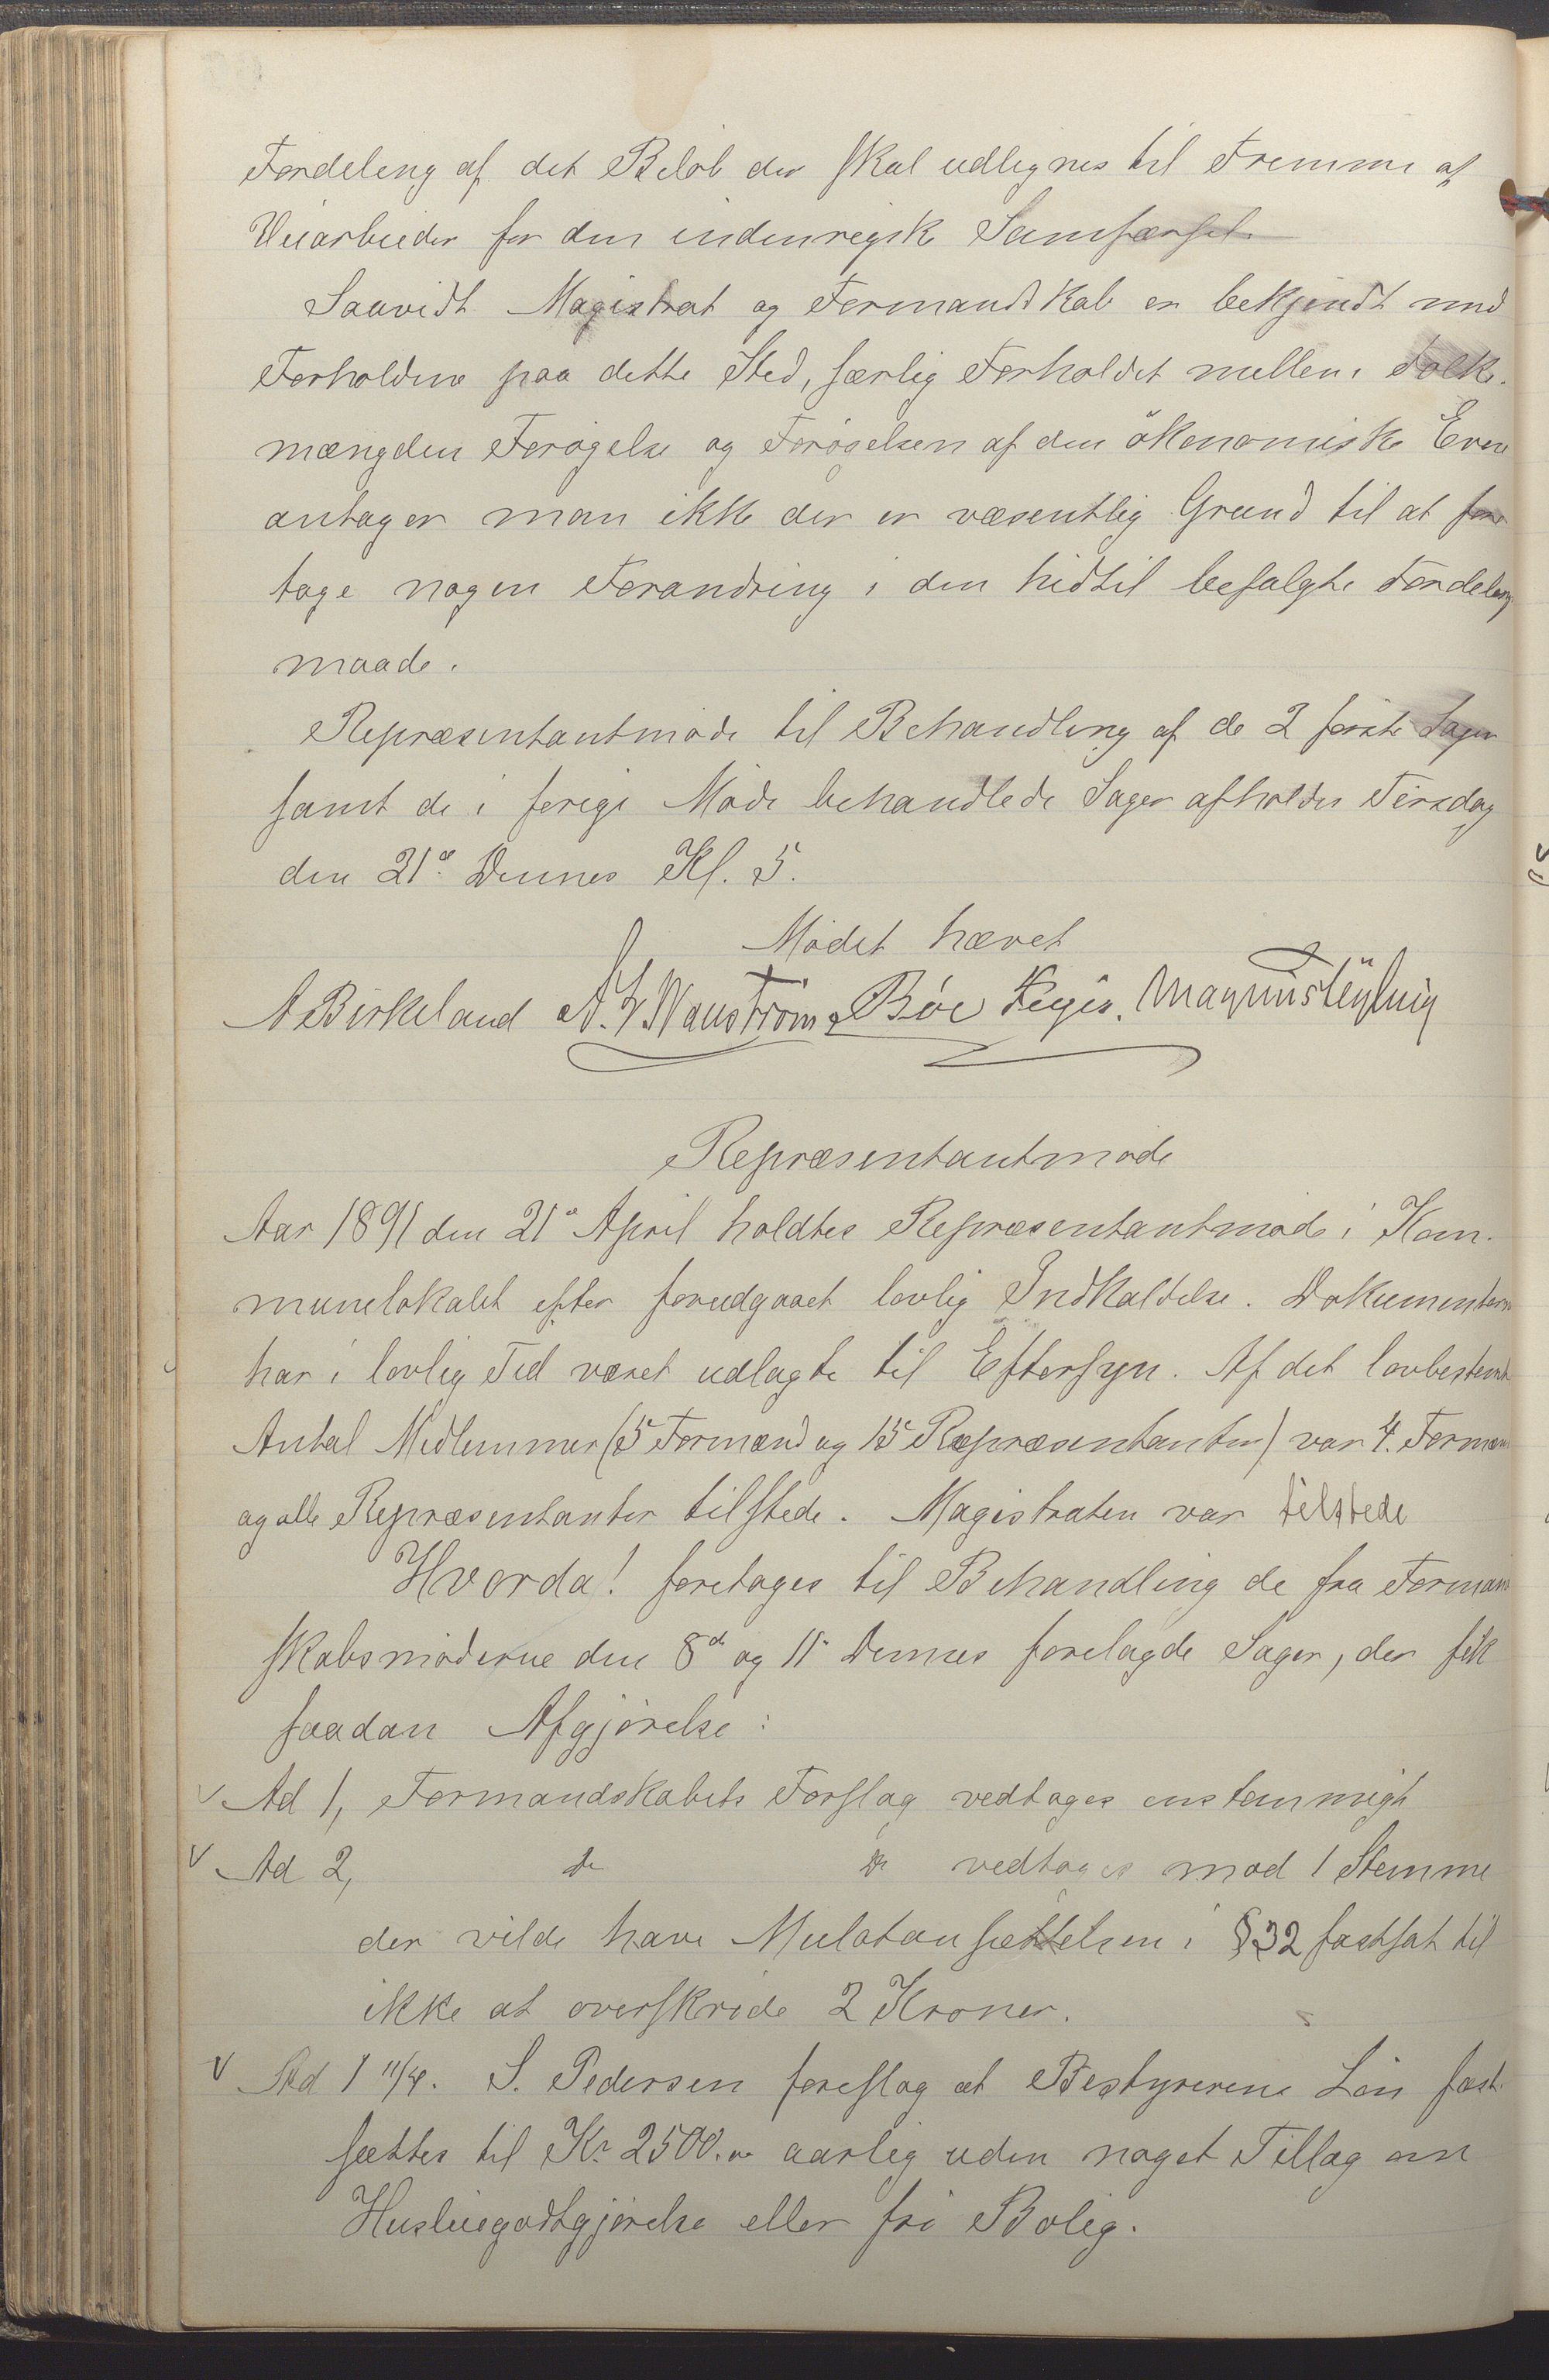 Fordeling af det Beløb der skal udlignes til Fremme af
Veiarbeider for den indenrigsk Samfærsel
Saavidt Magistrat og Formandskab er bekjendt med
Forholdene paa dette Sted, særlig Forholdet mellem Folke-
mængden Forøgelse og Forøgelsen af den økonomiske Evne
antager man ikke der er væsentlig Grund til at fore
tage nogen Forandring i den hidtil befulgte Fordelings
maade.
Repræsentantmøde til Behandling af de 2 første Sager
samt de i forige Møde behandlede Sager afholdes Tirsdag
den 21de Dennes Kl. 5.
Mødet hævet
A Birkeland Bøe
Repræsentantmøde
Aar 1891 den 21de April holdtes Repræsentantmøde i Kom-
munelokalet efter forudgaaet lovlig Indkaldelse. Dokumenterne
har i lovlig Tid været udlagte til Eftersyn. Af det lovbestemte
Antal Medlemmer (5 Formænd og 15 Repræsentanter) var 4. Formænd
og alle Repræsentanter tilstede. Magistraten var tilstede
Hvorda! foretages til Behandling de fra Formand
skabsmøderne den 8de og 11te Dennes forelagde Sager, der fik
saadan Afgjørelse:
Ad 1, Formandskabets Forslag vedtages enstemmigt
Ad 2, do do vedtages mod 1 Stemme
der vilde have Mulctansættelsen i § 32 fastsat til
ikke at overskride 2 Kroner.
Ad 1 11/4. S. Pedersen foreslog at Bestyrerens Løn fast-
sættes til Kr. 2500.00 aarlig uden noget Tillæg om
Husleiegodtgjørelse eller fri Bolig.